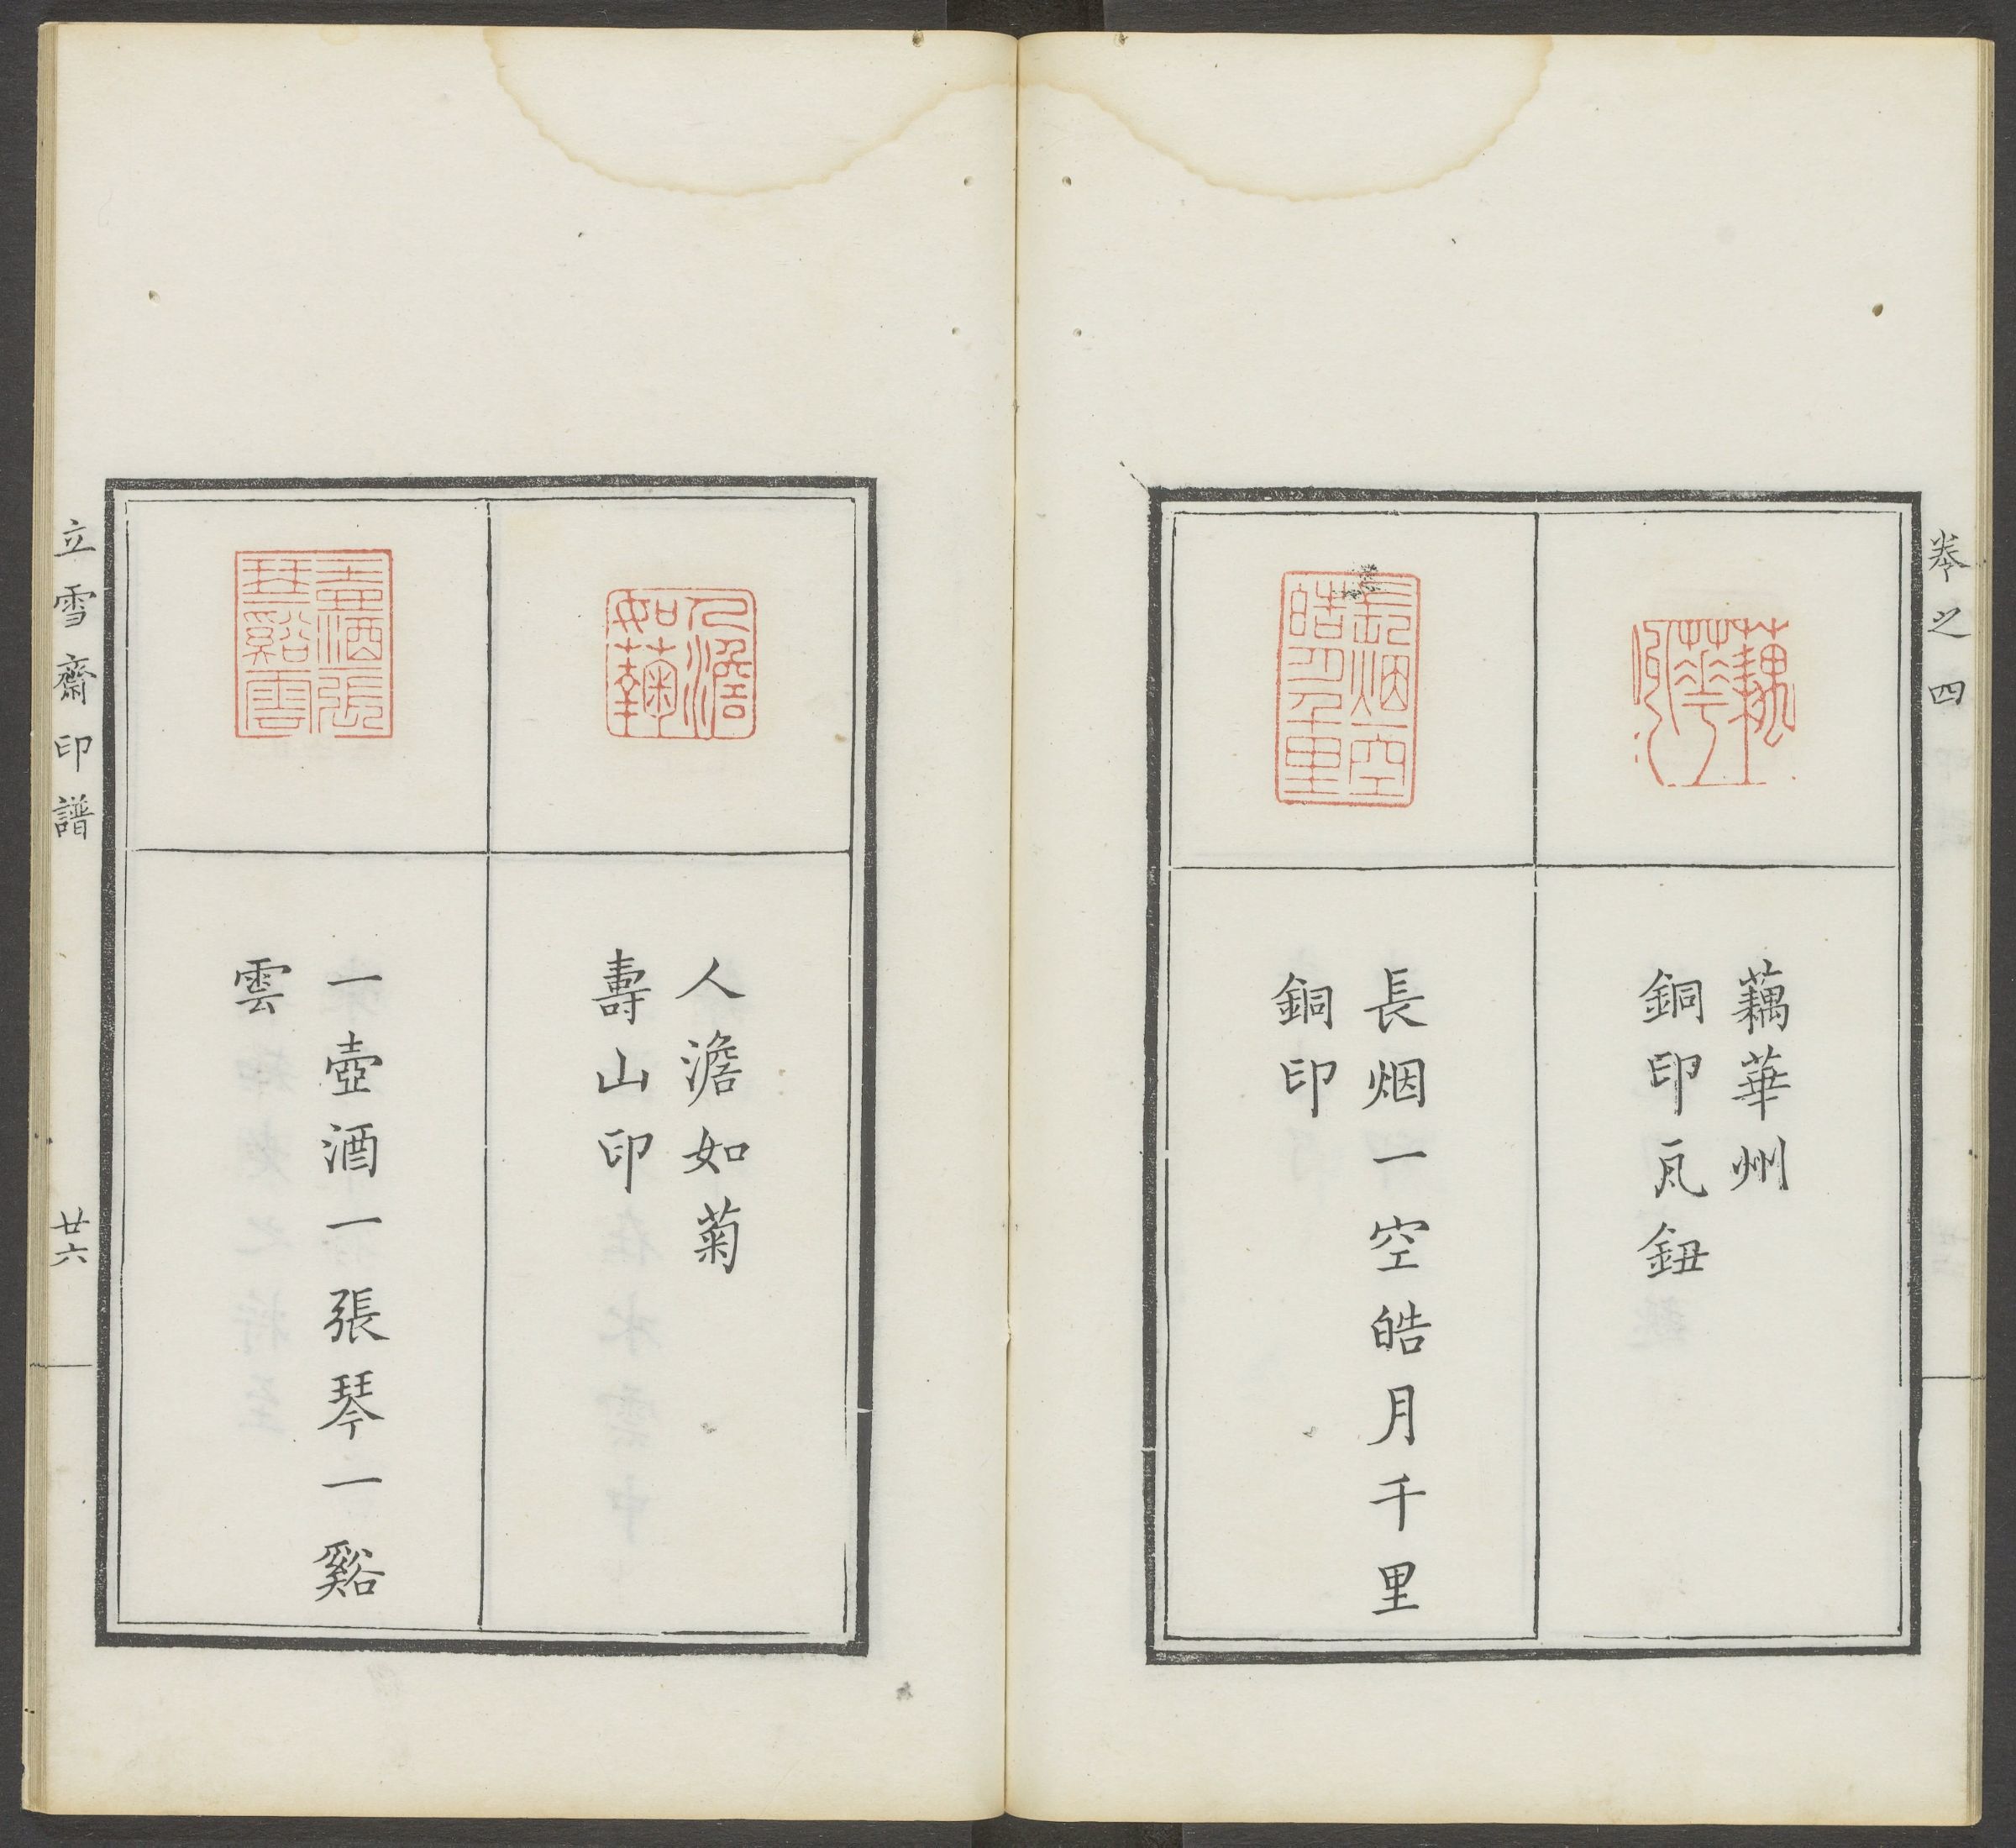 卷之四
藕華州
銅印瓦鈕
長烟一空皓月千里
銅印
人澹如菊
壽山印
一壺酒一張琴一谿
雲
立雪齋印譜
廿六